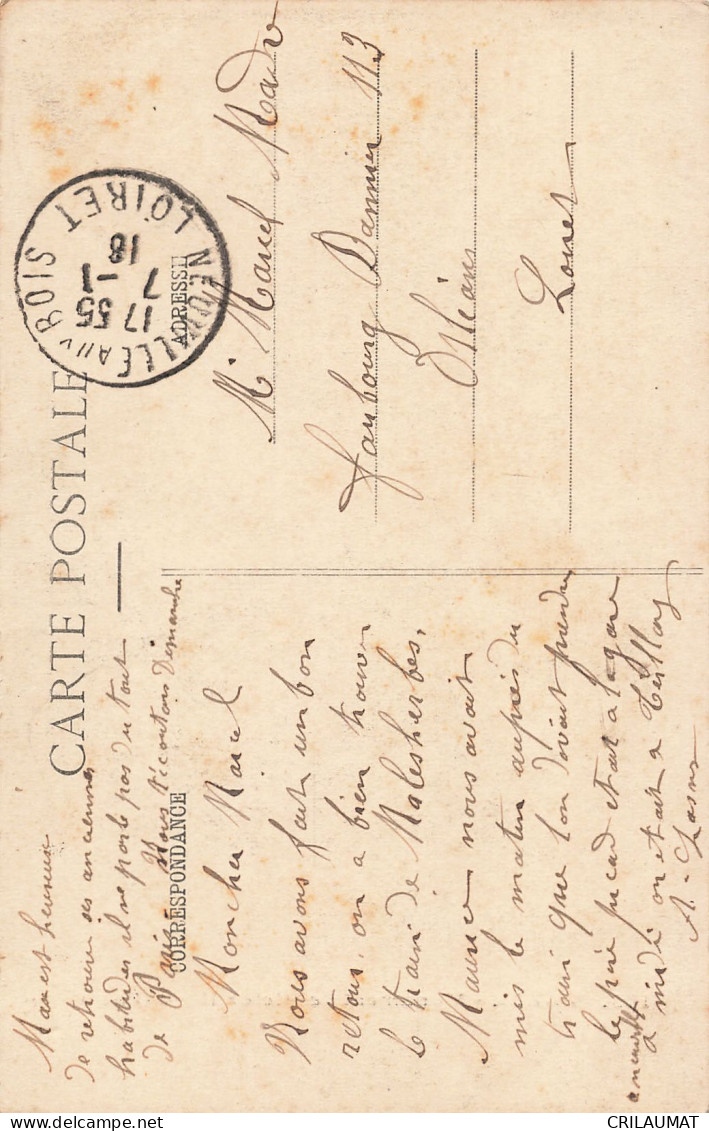 CARTE POSTALE
CORRESPONDANCE
ADRESSE
NEUVILLE AUX BOIS
LOIRET
17 55
7 -1
18
Mr Marcel
faubourg Bannier 113
Orléans
Loiret
Mon cher Marcel
Nous avons fait un bon
retour, on a bien trouver
le train de Malesherbes,
nous avait
mis le matin auprès du
train que l'on devait prendre
le père était a la gare
a midi on etait a
A.
est heureux
de retrouver ses anciennes
habitudes il ne parle pas du tout
de Paris. Nous Dimanche
CRILAUMAT